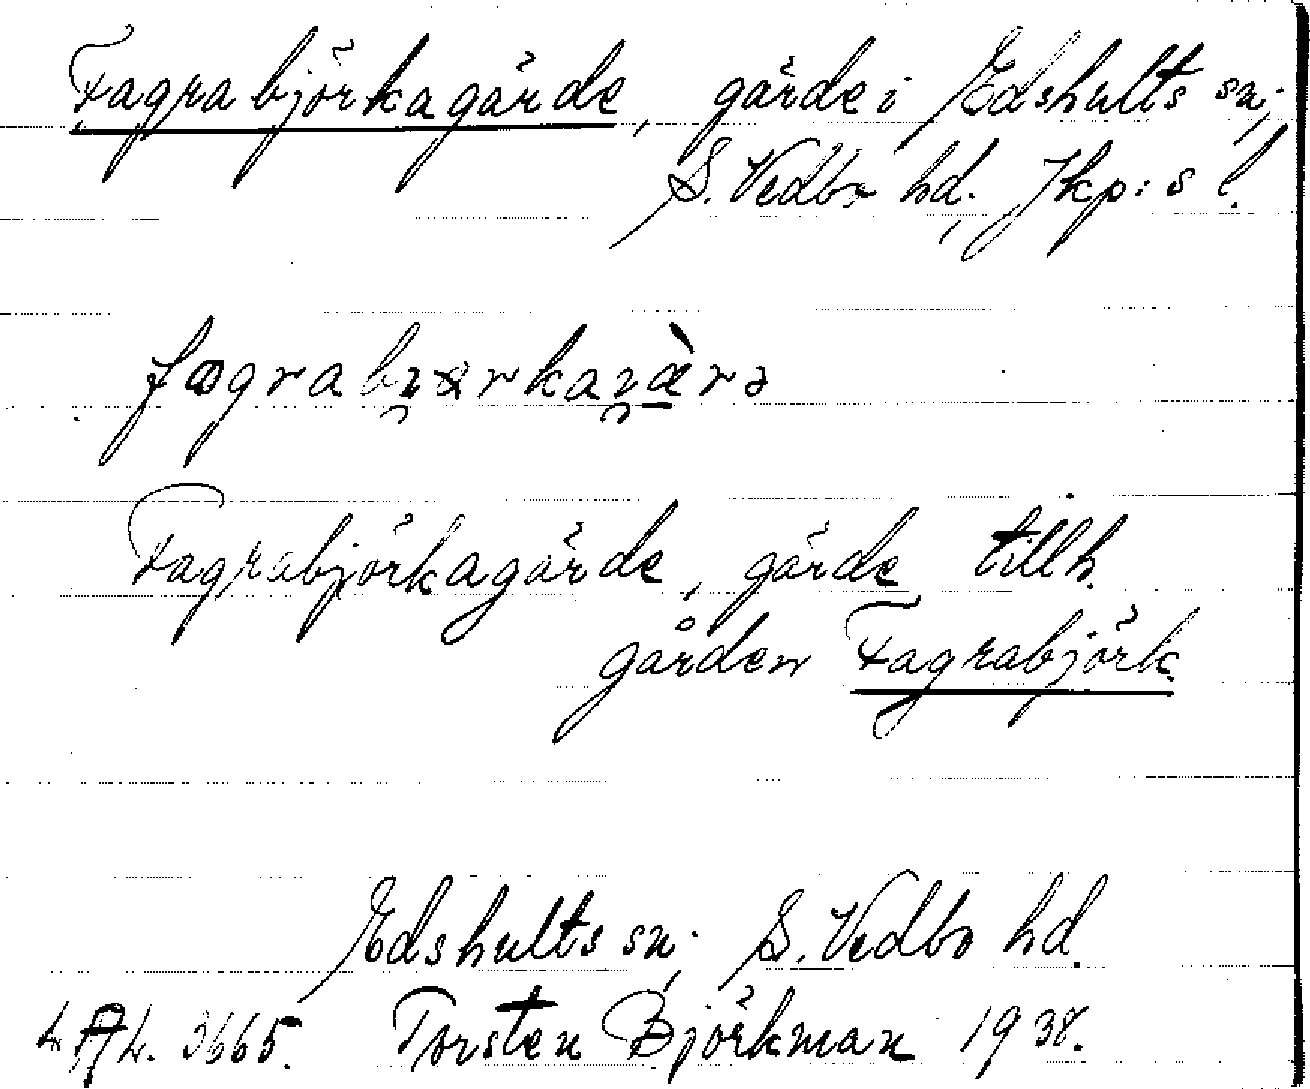 Fagrabjörkagärde, gärde i Edshults sn;
S. Vedbo hd; Jkp:s l.
Fagrabjörkagärde, gärde tillh.
gården Fagrabjörk.
Edshults sn; S. Vedbo hd.
3665. Torsten Björkman 1938.